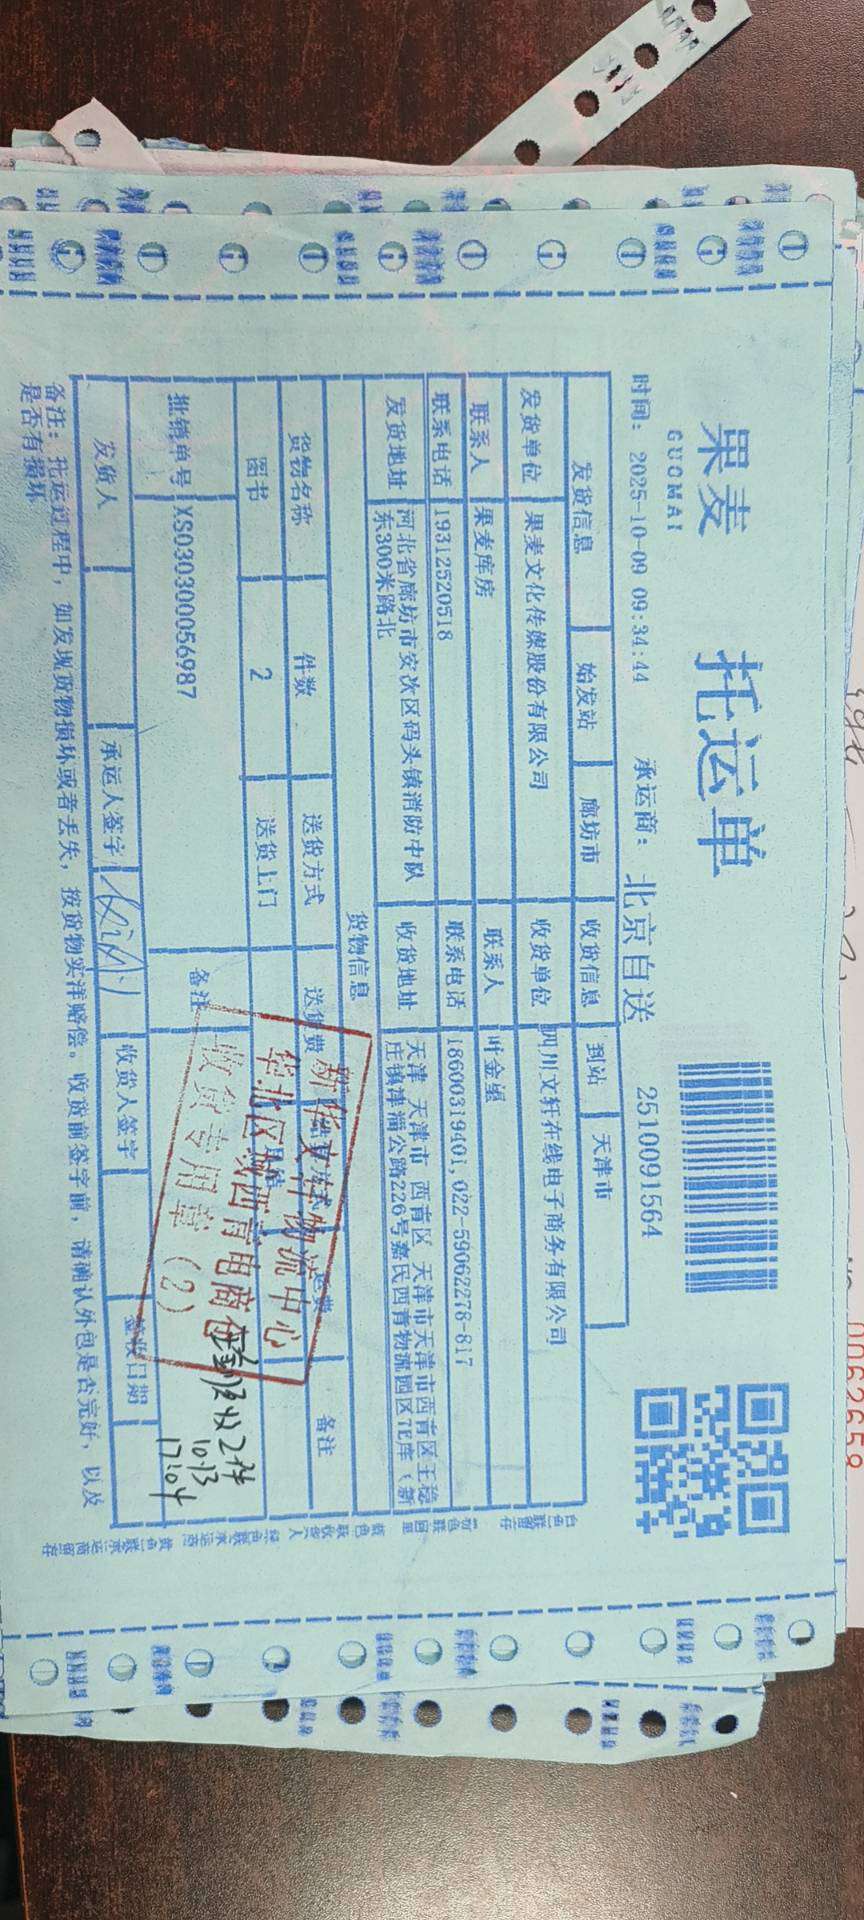 果麦
GUOMAI
托运单
时间: 2025-10-09 09:34:44 承运商: 北京自送 2510091564
发货信息 始发站 廊坊市 收货信息 到站 天津市
发货单位 果麦文化传媒股份有限公司 收货单位 四川文轩在线电子商务有限公司
联系人 果麦库房 联系人
联系电话 19312520518 联系电话 18600319401,022-59062278-817
发货地址 河北省廊坊市安次区码头镇消防中队 收货地址 天津 天津市 西青区 天津市天津市西青区王稳
东300米路北 庄镇津淄公路226号嘉民西青物流园区7E库（新
货物信息
货物名称 件数 送货方式 送货费 运费 备注
图书 2 送货上门
批销单号 XS030300056987 备注
新华文轩物流中心
华北区域西青电商仓
收货专用章(2)
实收2件
10.13
17:04
发货人 承运人签字 收货人签字 签收日期
备注: 托运过程中，如发现货物损坏或者丢失，按货物实洋赔偿。收货前签字前，请确认外包是否完好，以及
是否有损坏
0062658